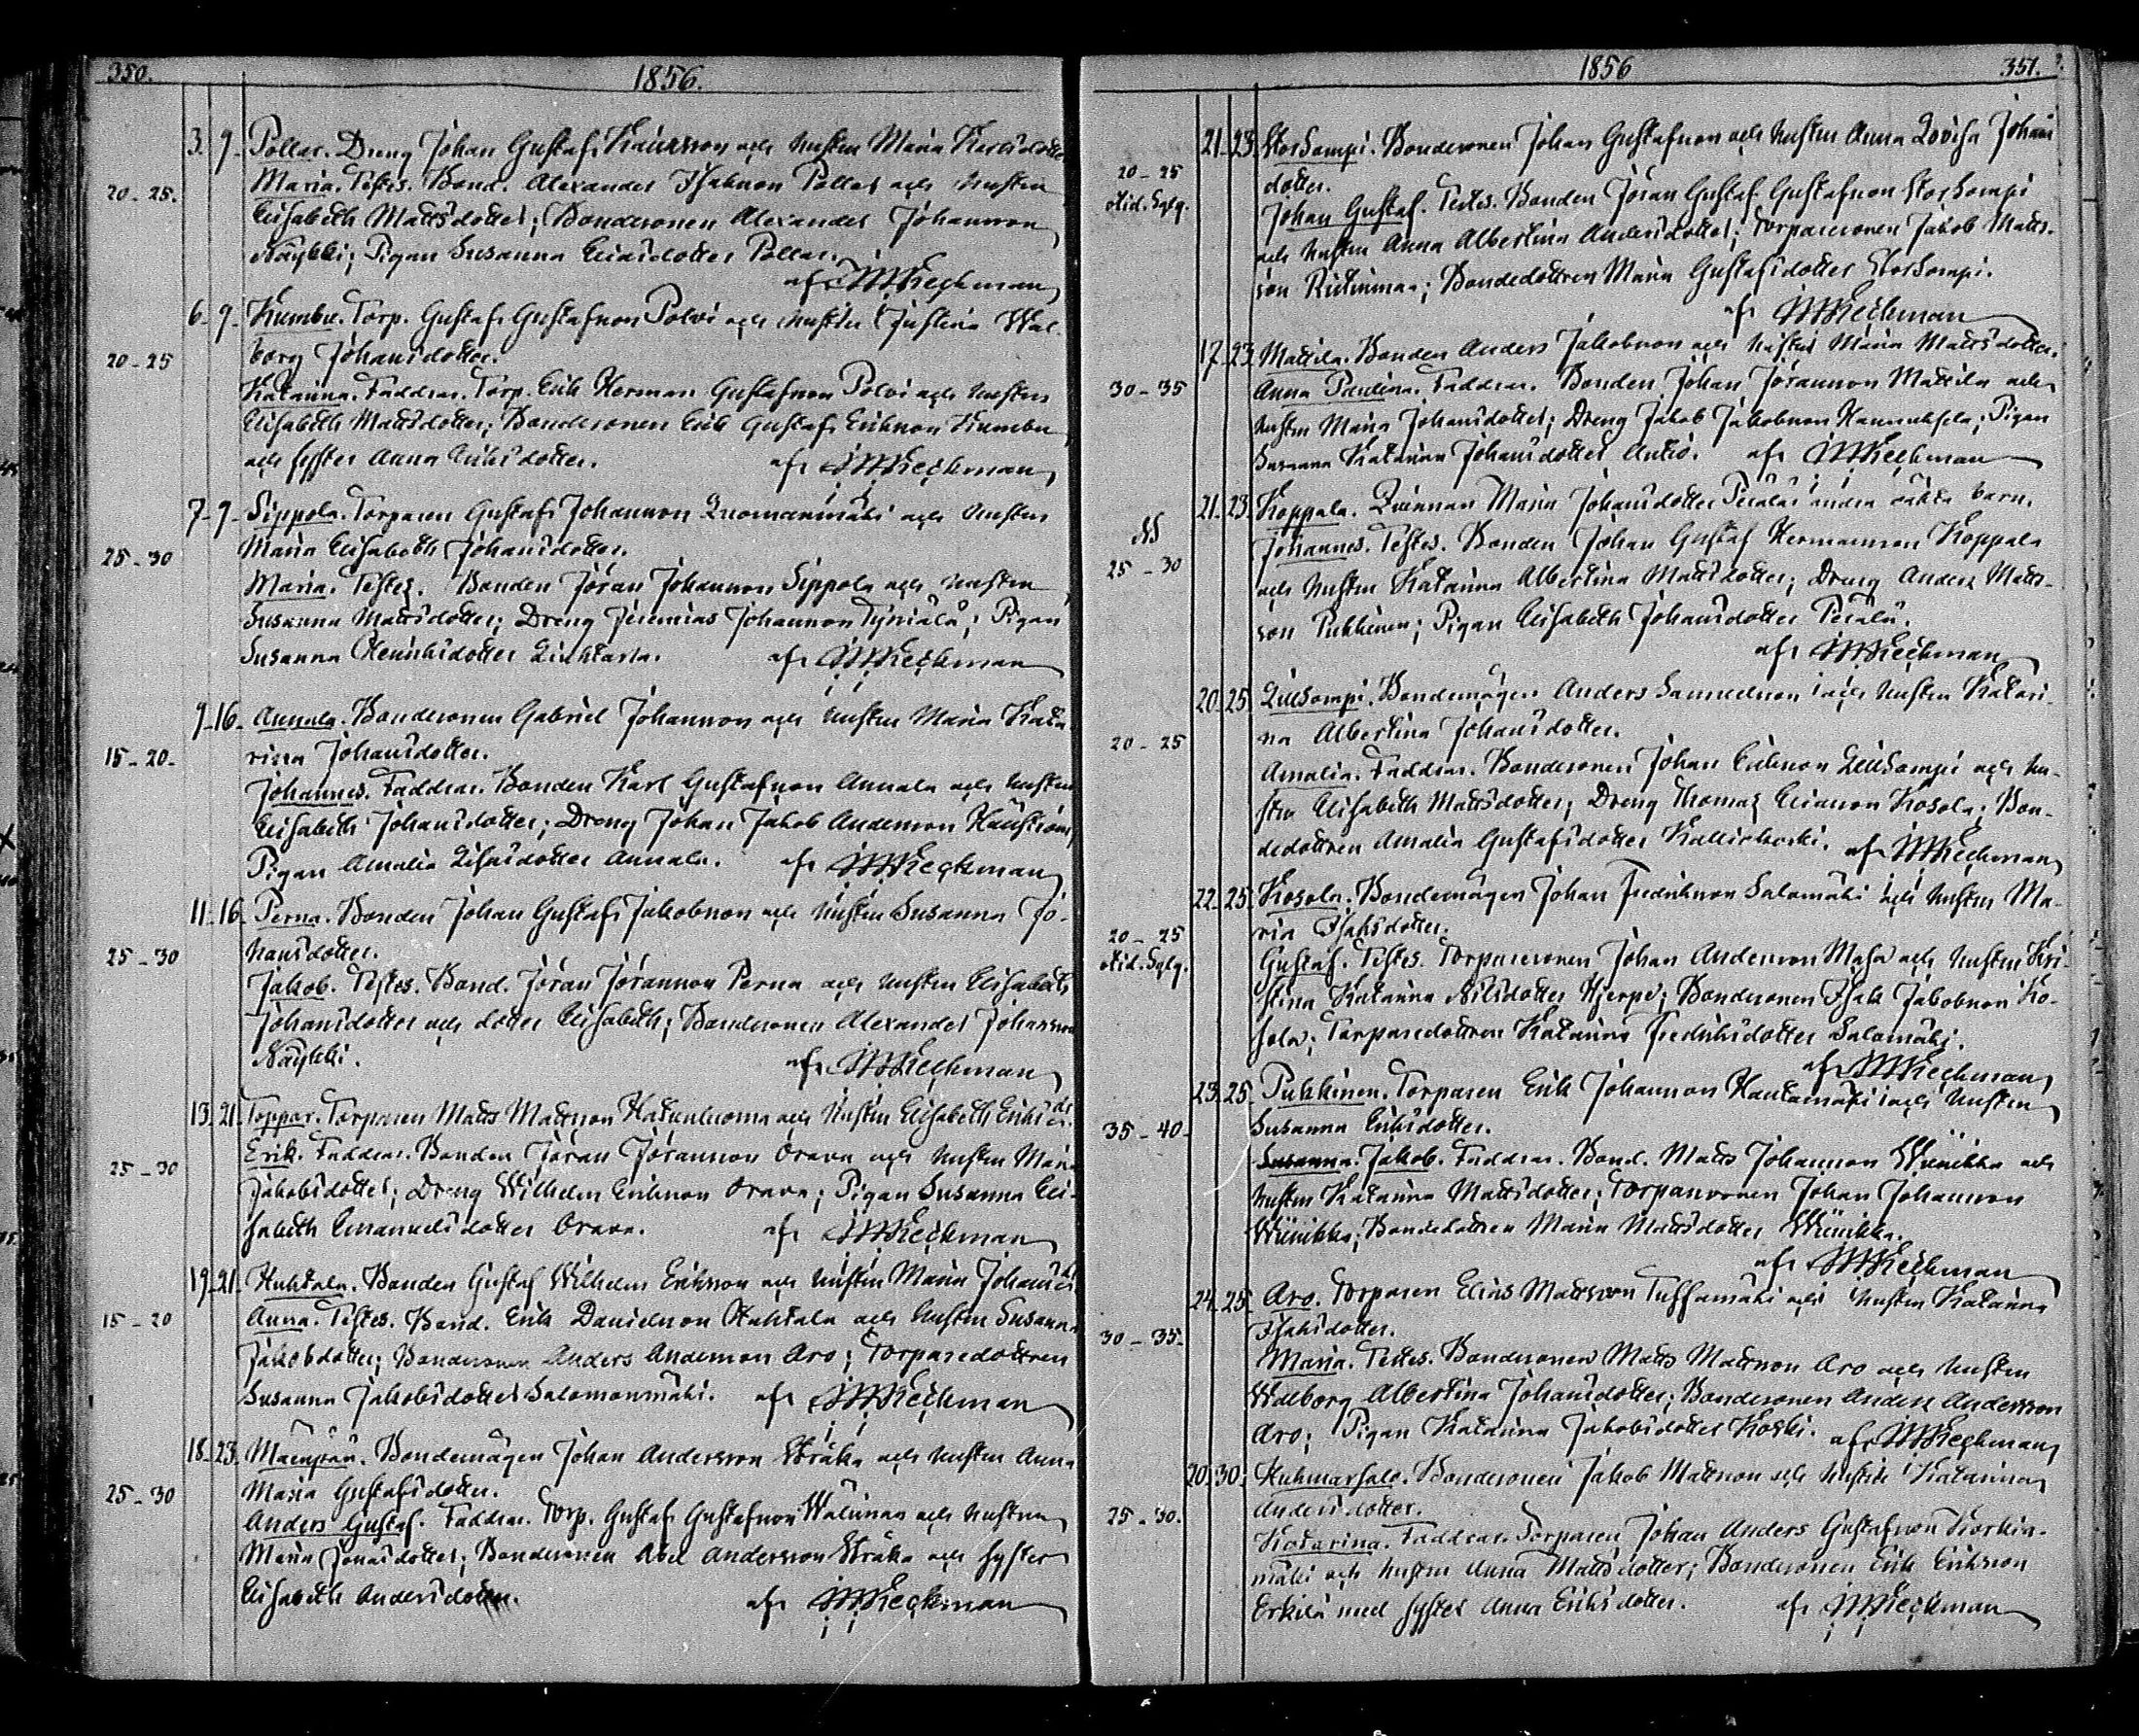 350.
1856.
3. 9. Pollar. Dreng Johan Gustaf och Hustrun Maria
20-25. Maria. Testes. Bond. Alexander Isaksson Pollar och Hustrun
Elisabeth Mattsdotter; Bondesonen Alexander Johansson
Näykki; Pigan Susanna Eliasdotter Pollar.
af
6. 9. Kumbu. Torp. Gustaf Gustafsson Polvi och Hustrun Justina Wal-
20-25 borg Johansdotter.
Katarina. Faddrar. Torp. Erik Herman Gustafsson Polvi och Hustrun
Elisabeth Mattsdotter; Bondesonen Erik Gustaf Eriksson Kumbu
och syster Anna Eriksdotter. af
7. 9. Sippola. Torparen Gustaf Johansson Luomanmäki och Hustrun
25-30 Maria Elisabeth Johansdotter.
Maria. Testes. Bonden Jöran Johansson Sippola och Hustrun
Susanna Mattsdotter; Dreng Jeremias Johansson Tyniälä; Pigan
Susanna Henriksdotter. af
9. 16. Annala. Bondesonen Gabriel Johansson och Hustrun Maria Kata-
15-20. rina Johansdotter.
Johannes. Faddrar. Bonden Karl Gustafsson Annala och Hustrun
Elisabeth Johansdotter; Dreng Johan Jakob Andersson
Pigan Amalia Annala. af
11. 16. Perna. Bonden Johan Gustaf Jakobsson och Hustrun Susanna Jo-
25-30 hansdotter.
Jakob. Testes. Bond. Jöran Jöransson Perna och Hustrun Elisabeth
Johansdotter och dotter Elisabeth; Bondesonen Alexander Johansson
Näykki. af
13. 21. Toppar. Torparen Matts Mattsson Hakunluoma och Hustrun Elisabeth Eriksdr.
25-30 Erik. Faddrar. Bonden Jöran Jöransson Orava och Hustrun Maria
Jakobsdotter; Dreng Wilhelm Eriksson Orava; Pigan Susanna Eli-
sabeth Emanuelsdotter Orava. af
19. 21. Huhtala. Bonden Gustaf Wilhelm Eriksson och Hustrun Maria Johansdr.
15-20 Anna. Testes. Bond. Erik Danielsson Huhtala och Hustrun Susanna
Jakobsdotter; Bondesonen Anders Andersson Aro; Torparedottren
Susanna Jakobsdotter Salomonmäki. af
18. 23. Mäenpää. Bondemågen Johan Andersson Skråka och Hustrun Anna
25-30 Maria Gustafsdotter.
Anders Gustaf. Faddrar. Torp. Gustaf Gustafsson och Hustrun
Maria Jonasdotter; Bondesonen Abel Andersson Skråka och syster
Elisabeth Andersdotter. af
1856 351.
21. 23. Storsompi. Bondesonen Johan Gustafsson och Hustrun Anna Lovisa Johans
20-25 dotter.
Johan Gustaf. Testes. Bonden Jöran Gustaf Gustafsson Storsompi
och Hustrun Anna Albertina Andersdotter; Torparesonen Jakob Matts-
son; Bondedottren Maria Gustafsdotter Storsompi.
af
17. 23. Mattila. Bonden Anders Jakobsson och Hustrun Maria Mattsdotter.
30-35 Anna Paulina. Faddrar. Bonden Johan Jöransson Mattila och
Hustrun Maria Johansdotter; Dreng Jakob Jakobsson Hannuksela; Pigan
Susanna Katarina Johansdotter Antio. af
21. 23. Koppala. Qvinnan Maria Johansdotter Perälä's andra oäkta barn.
25-30 Johannes. Testes. Bonden Johan Gustaf Hermansson Koppala
och Hustrun Katarina Albertina Mattsdotter; Dreng Anders Matts-
son Pukkinen; Pigan Elisabeth Johansdotter Perälä.
af
20. 25. Lillsompi. Bondemågen Anders Samuelsson och Hustrun Katari-
20-25 na Albertina Johansdotter.
Amalia. Faddrar. Bondesonen Johan Eriksson Lillsompi och Hu-
strun Elisabeth Mattsdotter; Dreng Thomas Eliasson Kosola; Bon-
dedottren Amalia Gustafsdotter Kalliokoski. af
22. 25. Kosola. Bondemågen Johan Fredriksson Salomäki och Hustrun Ma-
20-25 ria Isaksdotter.
Gustaf. Testes. Torparesonen Johan Andersson och Hustrun Kri-
stina Katarina Nilsdotter Hjerpe; Bondesonen Isak Jakobsson Ko-
sola; Torparedottren Katarina Fredriksdotter Salomäki.
af
23. 25. Pukkinen. Torparen Erik Johansson Hautamäki och Hustrun
35-40. Susanna Eriksdotter.
Susanna. Jakob. Faddrar. Bond. Matts Johansson Wiinikka och
Hustrun Katarina Mattsdotter; Torparesonen Johan Johansson
Wiinikka; Bondedottren Maria Mattsdotter Wiinikka.
af
24. 25. Aro. Torparen Elias Mattsson Tuffamäki och Hustrun Katarina
30-35. Isaksdotter.
Maria. Testes. Bondesonen Matts Mattsson Aro och Hustrun
Walborg Albertina Johansdotter; Bondesonen Anders Andersson
Aro; Pigan Katarina Jakobsdotter Koski. af
20. 30. Huhmarsalo. Bondesonen Jakob Mattsson och Hustrun Katarina
25-30. Andersdotter.
Katarina. Faddrar. Torparen Johan Anders Gustafsson Korkia-
mäki och Hustrun Anna Mattsdotter; Bondesonen Erik Eriksson
Erkilä med syster Anna Eriksdotter. af